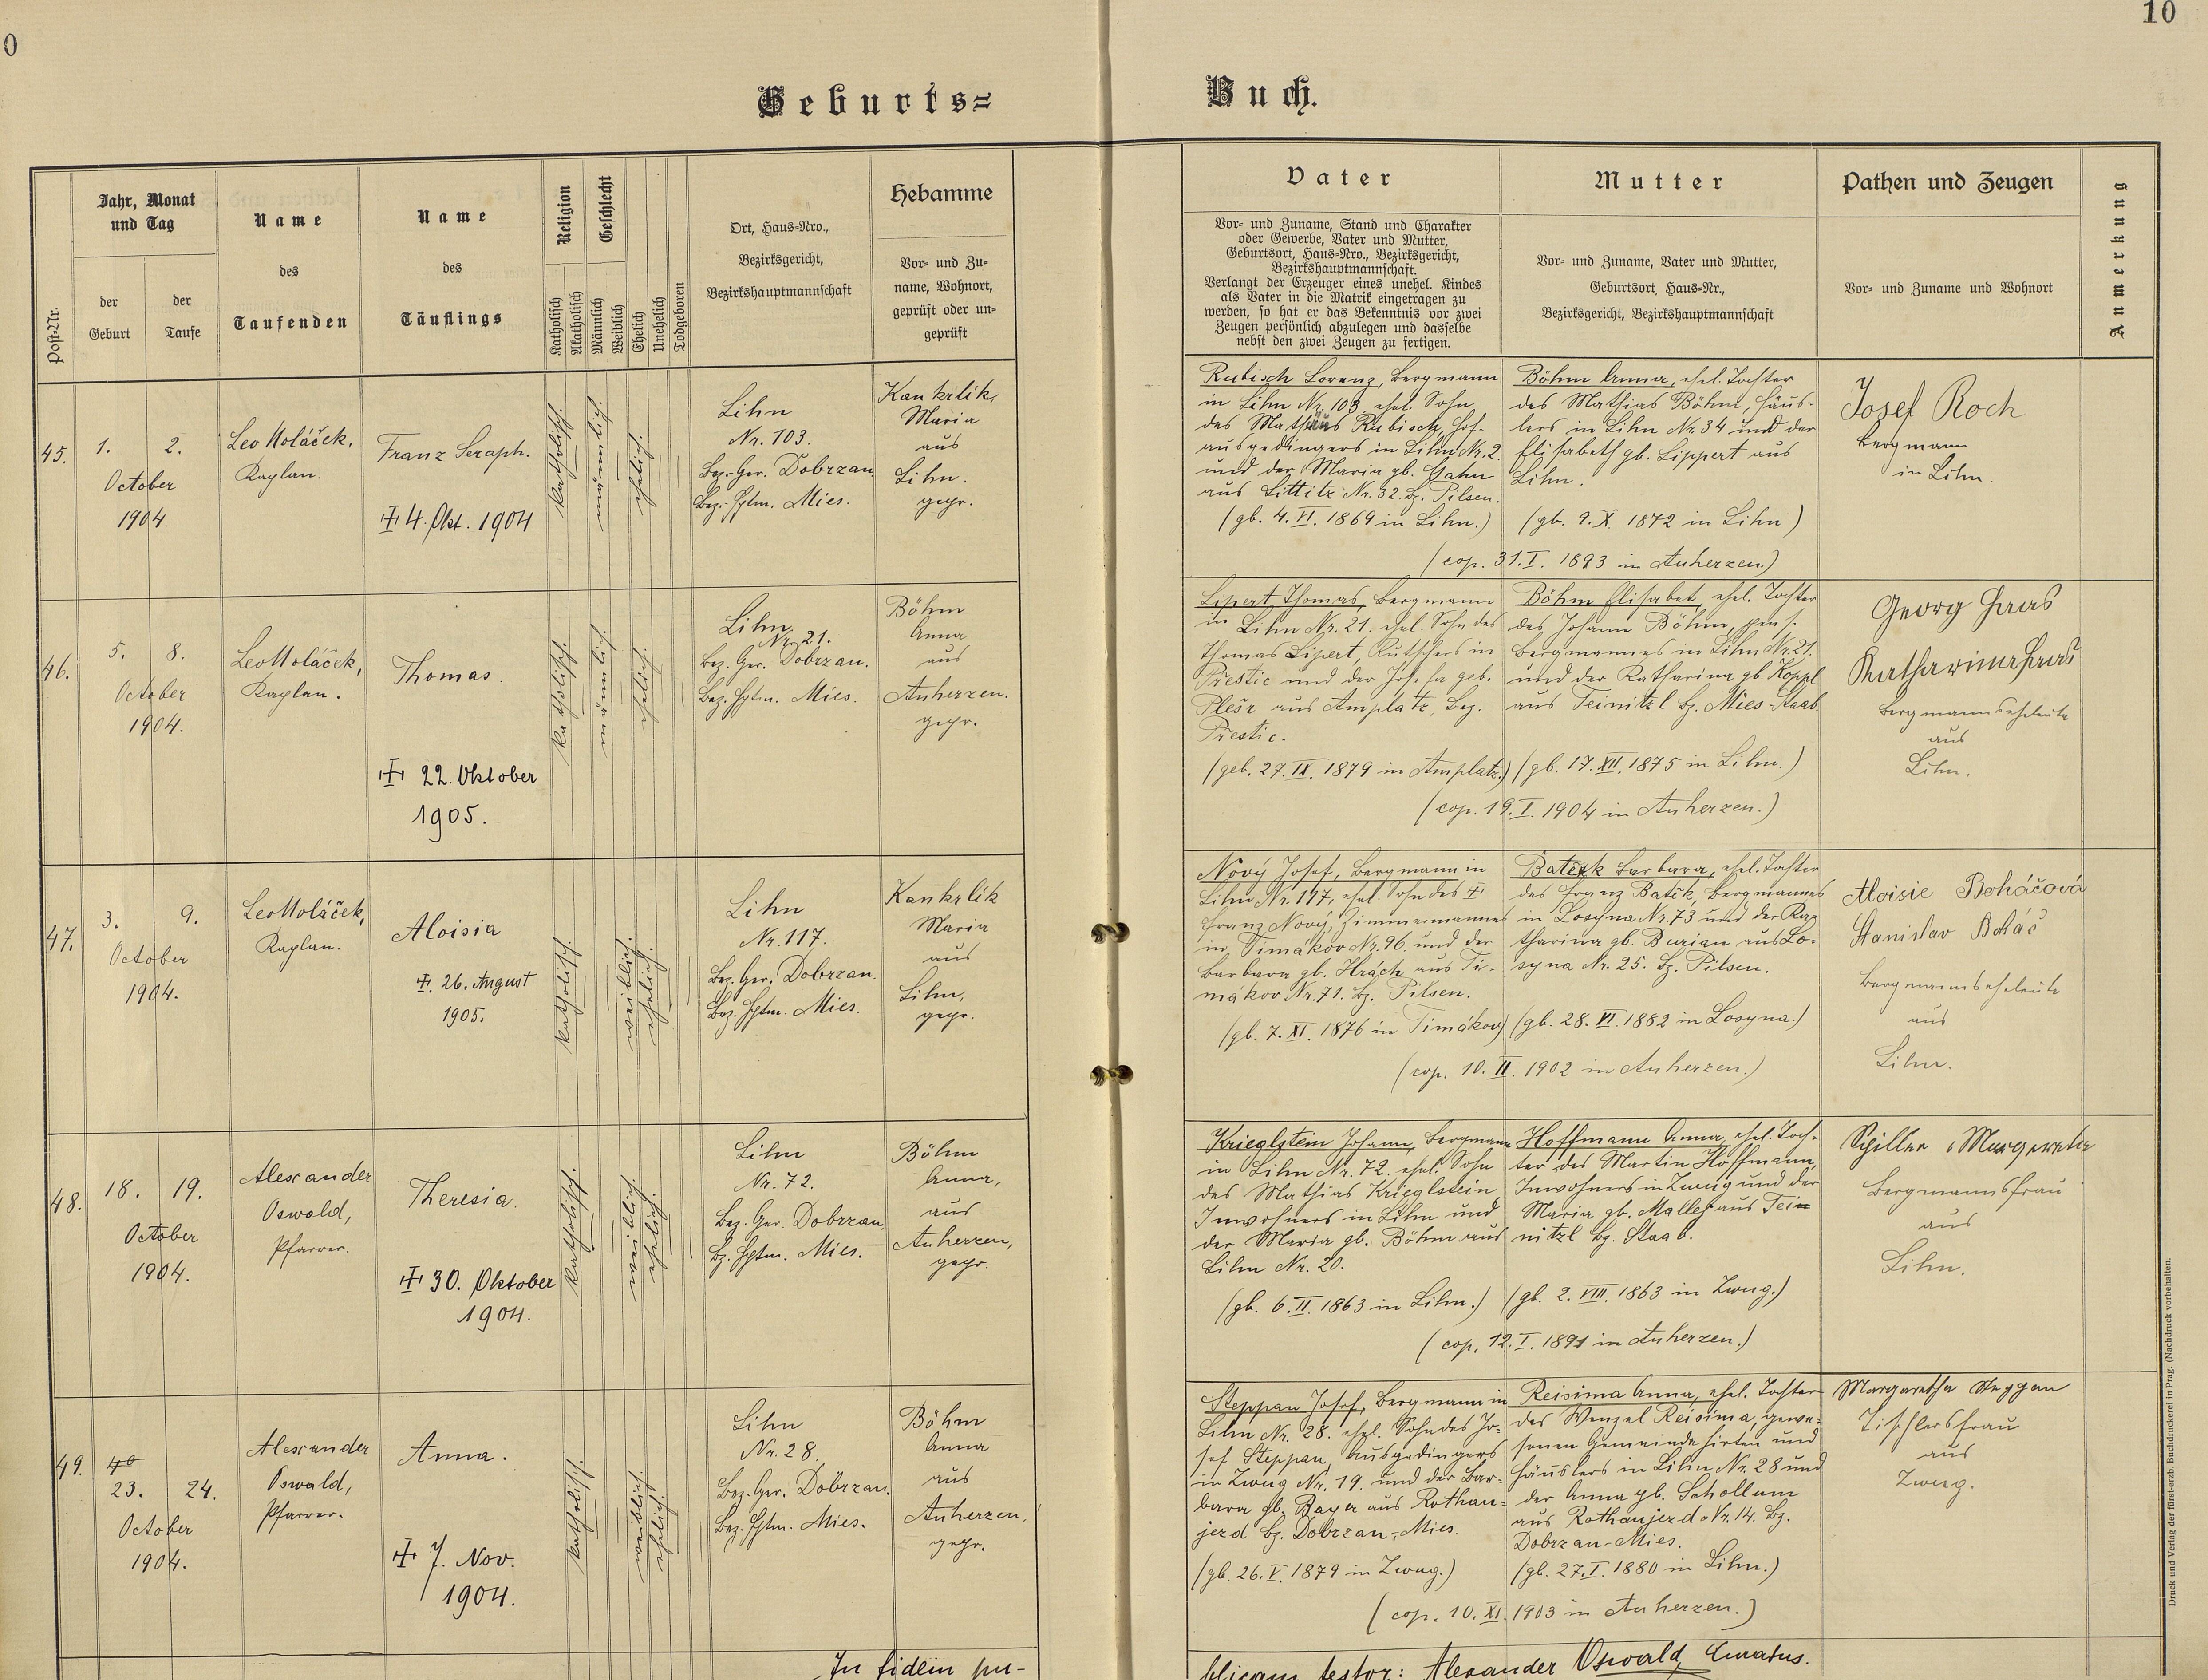 0
10
Geburts=
Buch.
Post-Nr.
Jahr, Monat
und Tag
der
Geburt
der
Taufe
Name
des
Taufenden
Name
des
Täuflings
Religion
Katholisch
Akatholisch
Geschlecht
Männlich
Weiblich
Ehelich
Unehelich
Todgeboren
Ort, Haus-Nro.,
Bezirksgericht,
Bezirkshauptmannschaft
Hebamme
Vor- und Zu-
name, Wohnort,
geprüft oder un-
geprüft
Vater
Vor- und Zuname, Stand und Charakter
oder Gewerbe, Vater und Mutter,
Geburtsort, Haus-Nro., Bezirksgericht,
Bezirkshauptmannschaft.
Verlangt der Erzeuger eines unehel. Kindes
als Vater in die Matrik eingetragen zu
werden, so hat er das Bekenntnis vor zwei
Zeugen persönlich abzulegen und dasselbe
nebst den zwei Zeugen zu fertigen.
Mutter
Vor- und Zuname, Vater und Mutter,
Geburtsort, Haus-Nr.,
Bezirksgericht, Bezirkshauptmannschaft
Pathen und Zeugen
Vor- und Zuname und Wohnort
Anmerkung
45.
1.
2.
October
1904.
Leo Holáček,
Kaplan.
Franz Seraph.
4. Okt. 1904
katholisch.
männlich.
ehelich.
Lihn
Nr. 103.
Bez. Ger. Dobrzan
Bez. Hptm. Mies.
Kankrlik,
Maria
aus
Lihn.
gepr.
Rubisch Lorenz, Bergmann
in Lihn Nr. 103 ehel. Sohn
des Mathäus Rubisch, Hof-
ausgedingers in Lihn Nr. 2
und der Maria gb. Hahn
aus Littitz Nr. 32. Bz. Pilsen.
(gb. 4. VI. 1869 in Lihn.)
Böhm Anna, ehel. Tochter
des Mathias Böhm, Häus-
lers in Lihn Nr. 34 und der
Elisabeth gb. Lippert aus
Lihn.
(gb. 9. X. 1872 in Lihn)
(cop. 31. I. 1893 in Auherzen)
Josef Roch
Bergmann
in Lihn.
46.
5.
8.
October
1904.
Leo Holáček,
Kaplan.
Thomas.
22. Oktober
1905.
katholisch.
männlich.
ehelich.
Lihn
Nr. 21.
Bez. Ger. Dobrzan.
Bez. Hptm. Mies.
Böhm
Anna
aus
Auherzen.
gepr.
Lipert Thomas, Bergmann
in Lihn Nr. 21. ehel. Sohn des
Thomas Lipert, Kutschers in
Přestic und der Josefa geb.
Plešr aus Amplatz, Bez.
Přestic.
(geb. 27. IX. 1879 in Amplatz.)
Böhm Elisabet, ehel. Tochter
des Johann Böhm, pens.
Bergmannes in Lihn Nr. 21.
und der Katharina gb. Koppl
aus Teinitzl Bz. Mies-Staab.
(gb. 17. XII. 1875 in Lihn.)
(cop. 19. I. 1904 in Auherzen.)
Georg Haas
Katharina Haas
Bergmannseheleute
aus
Lihn.
47.
3.
9.
October
1904.
Leo Holáček,
Kaplan.
Aloisia
26. August
1905.
katholisch.
weiblich.
ehelich.
Lihn
Nr. 117.
Bez. Ger. Dobrzan.
Bez. Hptm. Mies.
Kankrlik
Maria
aus
Lihn,
gepr.
Nový Josef, Bergmann in
Lihn Nr. 117, ehel. Sohn des
Franz Nový, Zimmermannes
in Timákov Nr. 96. und der
Barbara gb. Hrách aus Ti-
mákov Nr. 71. Bz. Pilsen.
(gb. 7. XI. 1876 in Timákov)
Barbara, ehel. Tochter
des Franz Batěk, Bergmannes
in Losyna Nr. 73 und der Ka-
tharina gb. Burian aus Lo-
syna Nr. 25. Bz. Pilsen.
(gb. 28. VI. 1882 in Losyna.)
(cop. 10. II. 1902 in Auherzen.)
Aloisie Boháčová
Stanislav Boháč
Bergmannseheleute
aus
Lihn.
48.
18.
19.
October
1904.
Alexander
Oswald,
Pfarrer.
Theresia.
30. Oktober
1904.
katholisch.
weiblich.
ehelich.
Lihn
Nr. 72.
Bez. Ger. Dobrzan
Bz. Hptm. Mies.
Böhm
Anna,
aus
Auherzen,
gepr.
Krieglstein Johann, Bergmann
in Lihn Nr. 72. ehel. Sohn
des Mathias Krieglstein
Inwohners in Lihn und
der Maria gb. Böhm aus
Lihn Nr. 20.
(gb. 6. II. 1863 in Lihn.)
Hoffmann Anna, ehel. Toch-
ter des Martin Hoffmann,
Inwohners in Zwug und der
Maria gb. Malley aus Tei-
nitzl Bz. Staab.
(gb. 2. VIII. 1863 in Zwug.)
(cop. 12. I. 1891 in Auherzen.)
Schiller Margaretha
Bergmannsfrau
aus
Lihn.
49.
23.
24.
October
1904.
Alexander
Oswald,
Pfarrer.
Anna.
7. Nov.
1904.
katholisch.
weiblich.
ehelich.
Lihn
Nr. 28,
Bez. Ger. Dobrzan.
Bez. Hptm. Mies.
Böhm
Anna
aus
Auherzen,
gepr.
Steppan Josef, Bergmann in
Lihn Nr. 28. ehel. Sohn des Jo-
sef Steppan, Ausgedingers
in Zwug Nr. 19. und der Bar-
bara gb. Bayer aus Rothau-
jezd Bz. Dobrzan-Mies.
(gb. 26. V. 1879 in Zwug.)
Reisima Anna, ehel. Tochter
des Wenzel Reisima, gewe-
senen Gemeindehirten und
Häuslers in Lihn Nr. 28 und
der Anna gb. Schollum
aus Rothaujezd Nr. 14. Bz.
Dobrzan-Mies.
(gb. 27. I. 1880 in Lihn.)
(cop. 10. XI. 1903 in Auherzen.)
Margaretha Steppan
Tischlersfrau
aus
Zwug.
In fidem pu-
blicam testor: Alexander Oswald, Curatus.
Druck und Verlag der fürst-erzb. Buchdruckerei in Prag. (Nachdruck vorbehalten.